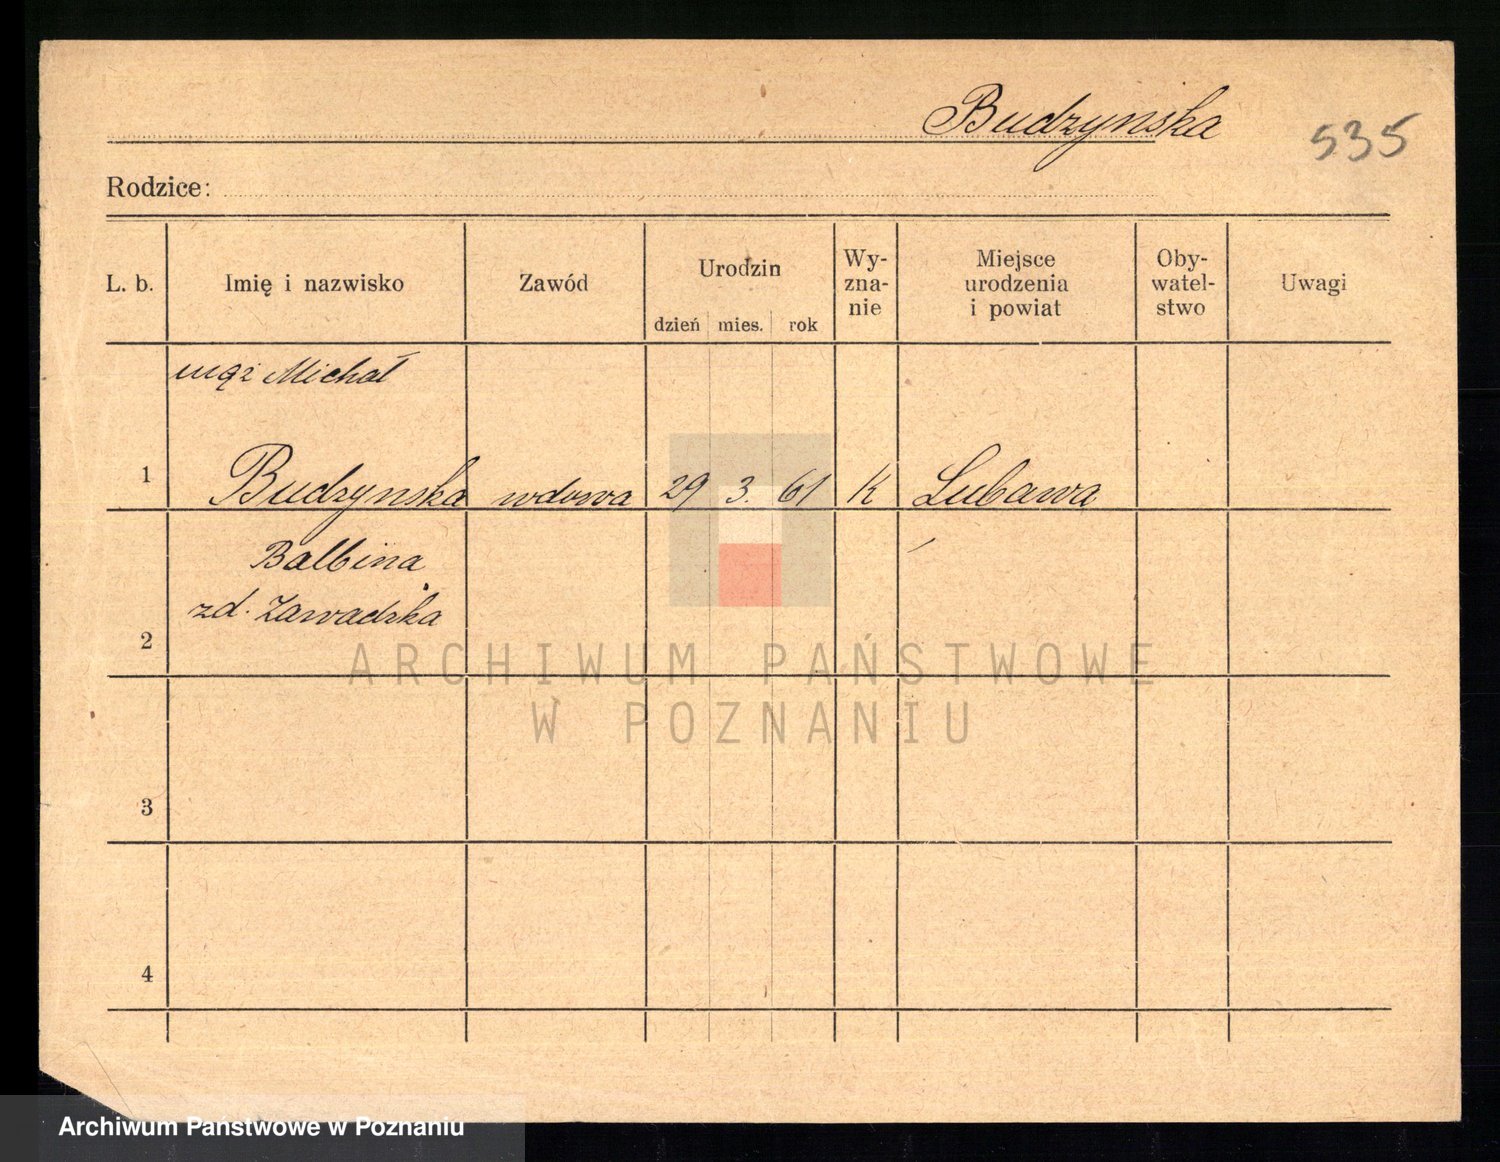 Budzynska
535
Rodzice:
L. b.
Imię i nazwisko
Zawód
Urodzin
dzień mies. rok
Wy-
zna-
nie
Miejsce
urodzenia
i powiat
Oby-
watel-
stwo
Uwagi
mąż Michał
1 Budzynska wdowa 29 3. 61 K Lubawa
Balbina
zd. Zawadzka
2
ARCHIWUM PAŃSTWOWE
W POZNANIU
3
4
Archiwum Państwowe w Poznaniu